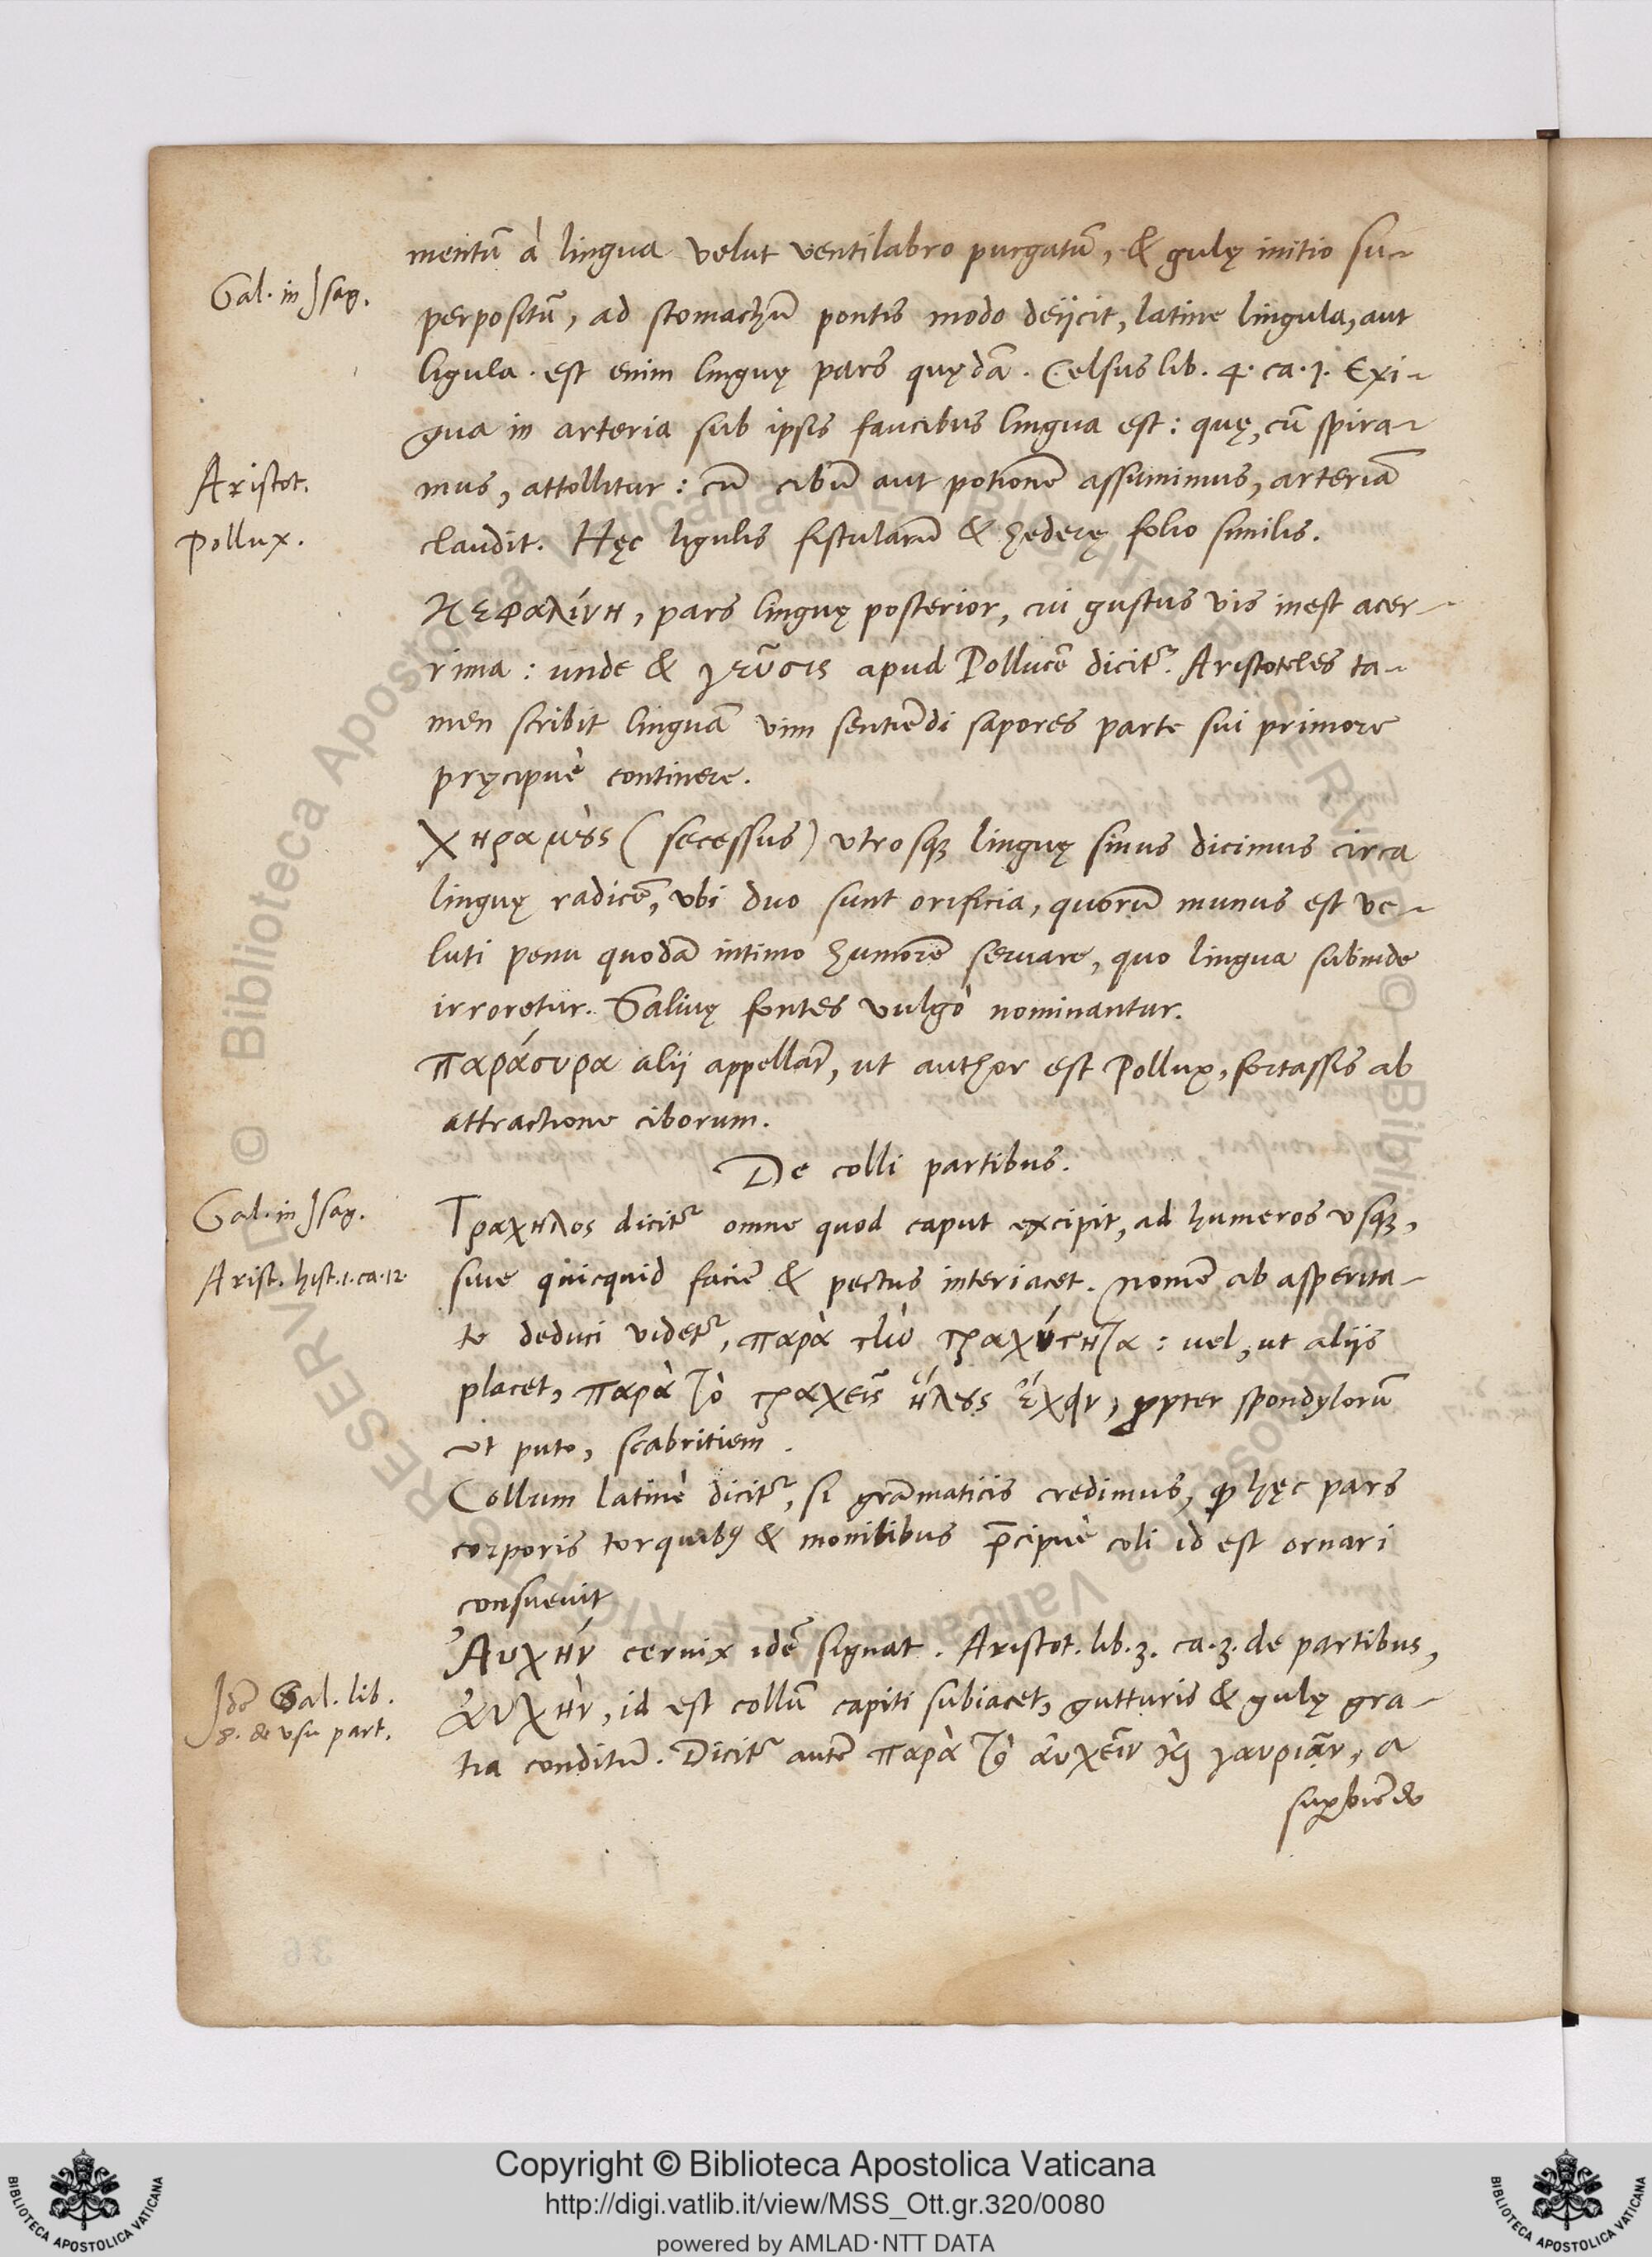 mentū à lingua velut ventilabro purgatū, & gulę initio su-
Gal. in Isag.
perpositū, ad stomachū pontis modo deijcit, latine lingula, aut
ligula. est enim linguę pars quędā. Celsus lib. 4. ca. 1. Exi-
gua in arteria sub ipsis faucibus lingua est: quę, cū spira-
Aristot.
mus, attollitur: cū cibū aut potionē assumimus, arteriā
Pollux.
claudit. Hęc ligulis fistularū & hederę folio similis.
Κεφαλίνη, pars linguę posterior, cui gustus vis inest acer-
rima: unde & γεῦσις apud Pollucē dicitr̄. Aristoteles ta-
men scribit linguā vim sentiēdi sapores parte sui primore
pręcipuè continere.
Χηραμὸς (secessus) utrosqꝫ linguę sinus dicimus circa
linguę radicē, ubi duo sunt orificia, quorū munus est ve-
luti penu quodā intimo humorē seruare, quo lingua subinde
irroretur. Saliuę fontes vulgò nominantur.
παράσυρα alij appellāt, ut author est Pollux, fortassis ab
attractione ciborum.
De colli partibus.
Gal. in Isag.
Τραχηλος dicitr̄ omne quod caput excipit, ad humeros usqꝫ,
Arist. hist. 1. ca. 12.
siue quicquid faciē & pectus interiacet. nomē ab asperita-
te deduci videtr̄, παρὰ τὴν τραχύτητα: uel, ut alijs
placet, παρὰ τὸ τραχεῖς ἥλους ἔχειν, ꝓpter spondylorū
ut puto, scabritiem.
Collum latinè dicitr̄, si grāmaticis credimus, ꝙ hęc pars
corporis torquibꝰ & monilibus p̄cipuè coli id est ornari
consueuit
Αὐχὴν ceruix idē signat. Aristot. lib. 3. ca. 3. de partibus,
Idē Gal. lib.
αὐχὴν, id est collū capiti subiacet, gutturis & gulę gra-
8. de usu part.
tia conditū. Dicitr̄ autē παρὰ τὸ αὐχεῖν καὶ γαυριᾶν, a
suꝑbiēdo
36
Copyright © Biblioteca Apostolica Vaticana
http://digi.vatlib.it/view/MSS_Ott.gr.320/0080
powered by AMLAD·NTT DATA